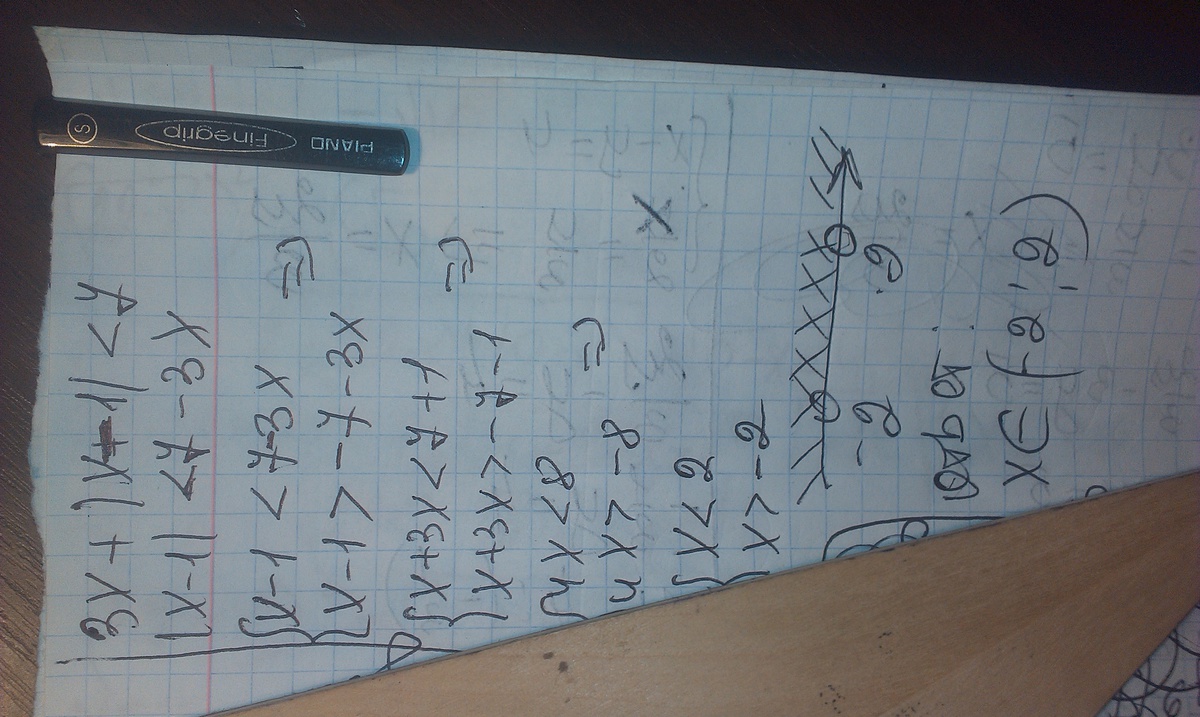 3x + |x-1| < 7
|x-1| < 7-3x
{x-1 < 7-3x
{x-1 > -7-3x =>
{x+3x < 7+1
{x+3x > -7-1 =>
{4x < 8
4x > -8 =>
{x < 2
{x > -2
-2 2
x∈(-2;2)
PIANO Finegrip S